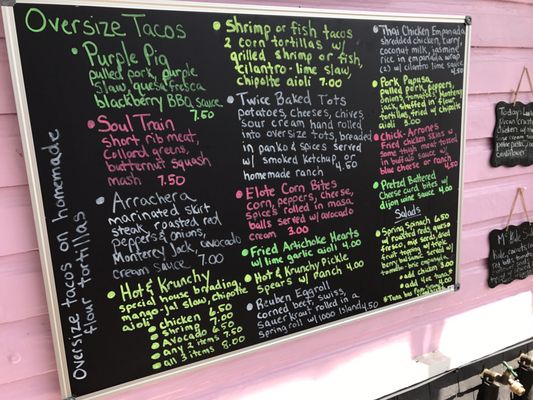 Oversize Tacos
Purple Pig
pulled pork, purple
slaw, quesa fresca
blackberry BBQ sauce
7.50
Soul Train
short rib meat,
Collard greens,
butternut squash
mash 7.50
Arrachera
marinated skirt
steak, roasted red
peppers & onions,
Monterey Jack, avocado
cream sauce 7.00
Hot & Krunchy
special house breading,
mango-jal slaw, chipotle
aioli
chicken 6.50
Shrimp 7.00
Avocado 6.50
any 2 items 7.50
all 3 items 8.00
Oversize tacos on homemade
flour tortillas
Shrimp or fish tacos
2 corn tortillas w/
grilled shrimp or fish,
cilantro-lime slaw
chipotle aioli 7.00
Twice Baked Tots
potatoes, cheeses, chives
sour cream hand rolled
into oversize tots, breaded
in panko & spices served
w/ smoked ketchup 4.50
or
homemade ranch
Elote Corn Bites
corn, peppers, cheese,
spices rolled in masa
balls served w/ avocado
cream 3.00
Fried Artichoke Hearts
w/ lime garlic aioli 4.00
Hot & Krunchy Pickle
Spears w/ ranch 4.00
Reuben Eggroll
corned beef, swiss,
Sauer Kraut rolled in a
Spring roll w/ 1000 Island 4.50
Thai Chicken Empanada
shredded chicken, curry,
coconut milk, jasmine
rice in empanada wrap
(2) w/ cilantro lime sauce
4.50
Pork Pupusa
pulled pork, peppers,
onions, tomatoes, Monterey
jack, stuffed in flour
tortilla, fried w/ chipotle
aioli 3.00
Chick-Arrone's
Fried chicken skins w/
some thigh meat tossed
in buffalo sauce w/
blue cheese or ranch
4.50
Pretzel Battered
Cheese curd Bites w/
dijon wine sauce 4.00
Salads
Spring Salad 6.50
add chicken 3.00
add
Today's